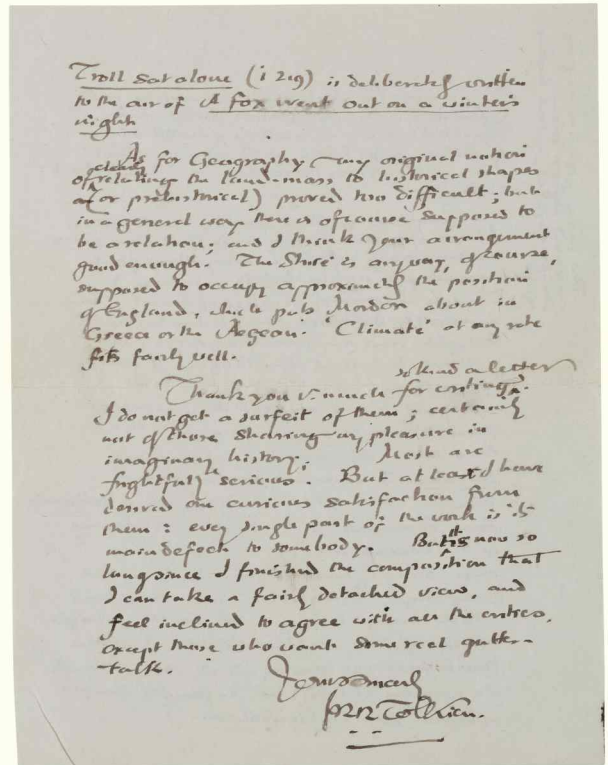 Troll sat alone (i 219) is deliberately written
to the air of A fox went out on a winter's
night
As for Geography – any original notion
of closely relating the land-mass to historical shapes
(or prehistorical) proved too difficult; but
in a general way there is of course supposed to
be a relation; and I think your arrangement
good enough. The Shire is anyway, of course,
supposed to occupy approximately the position
of England, which puts Mordor about in
Greece or the Aegean. 'Climate' at any rate
fits fairly well.
Thank you v. much for writing so kind a letter.
I do not get a surfeit of them; certainly
not of those sharing my pleasure in
imaginary history; Most are
frightfully serious. But at least I have
derived one curious satisfaction from
them: every single part of the work is its
main defect to somebody. But it is now so
long since I finished the composition that
I can take a fairly detached view, and
feel inclined to agree with all the critics,
except those who want some real gutter-
talk.
Yours sincerely
JRRTolkien.